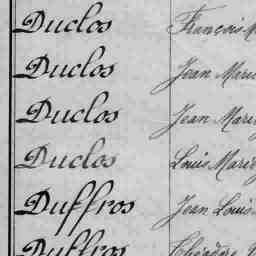 Duclos François M
Duclos Jean Marie
Duclos Jean Marie
Duclos Louis Marie
Duffros Jean Louis
Duffros Théodore